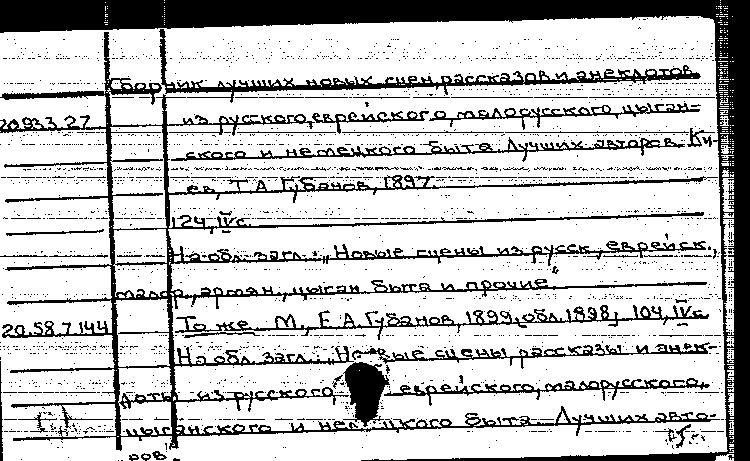 Сборник лучших новых сцен, рассказов и анекдотов
20.933.27 из русского, еврейского, малорусского, цыган-
ского и немецкого быта Лучших авторов. Ки-
ев, Т.А. Губанов, 1897.
124, IV с.
На обл. загл.: „Новые сцены из русск, еврейск.,
малор., армян., цыган. быта и прочие“
20.58.7.144 То же. М., Е.А. Губанов, 1899, обл. 1898, 104, IV с
На обл. загл.: „Новые сцены, рассказы и анек-
доты из русского, еврейского, малорусского,
цыганского и немецкого быта. Лучших авто-
ров"